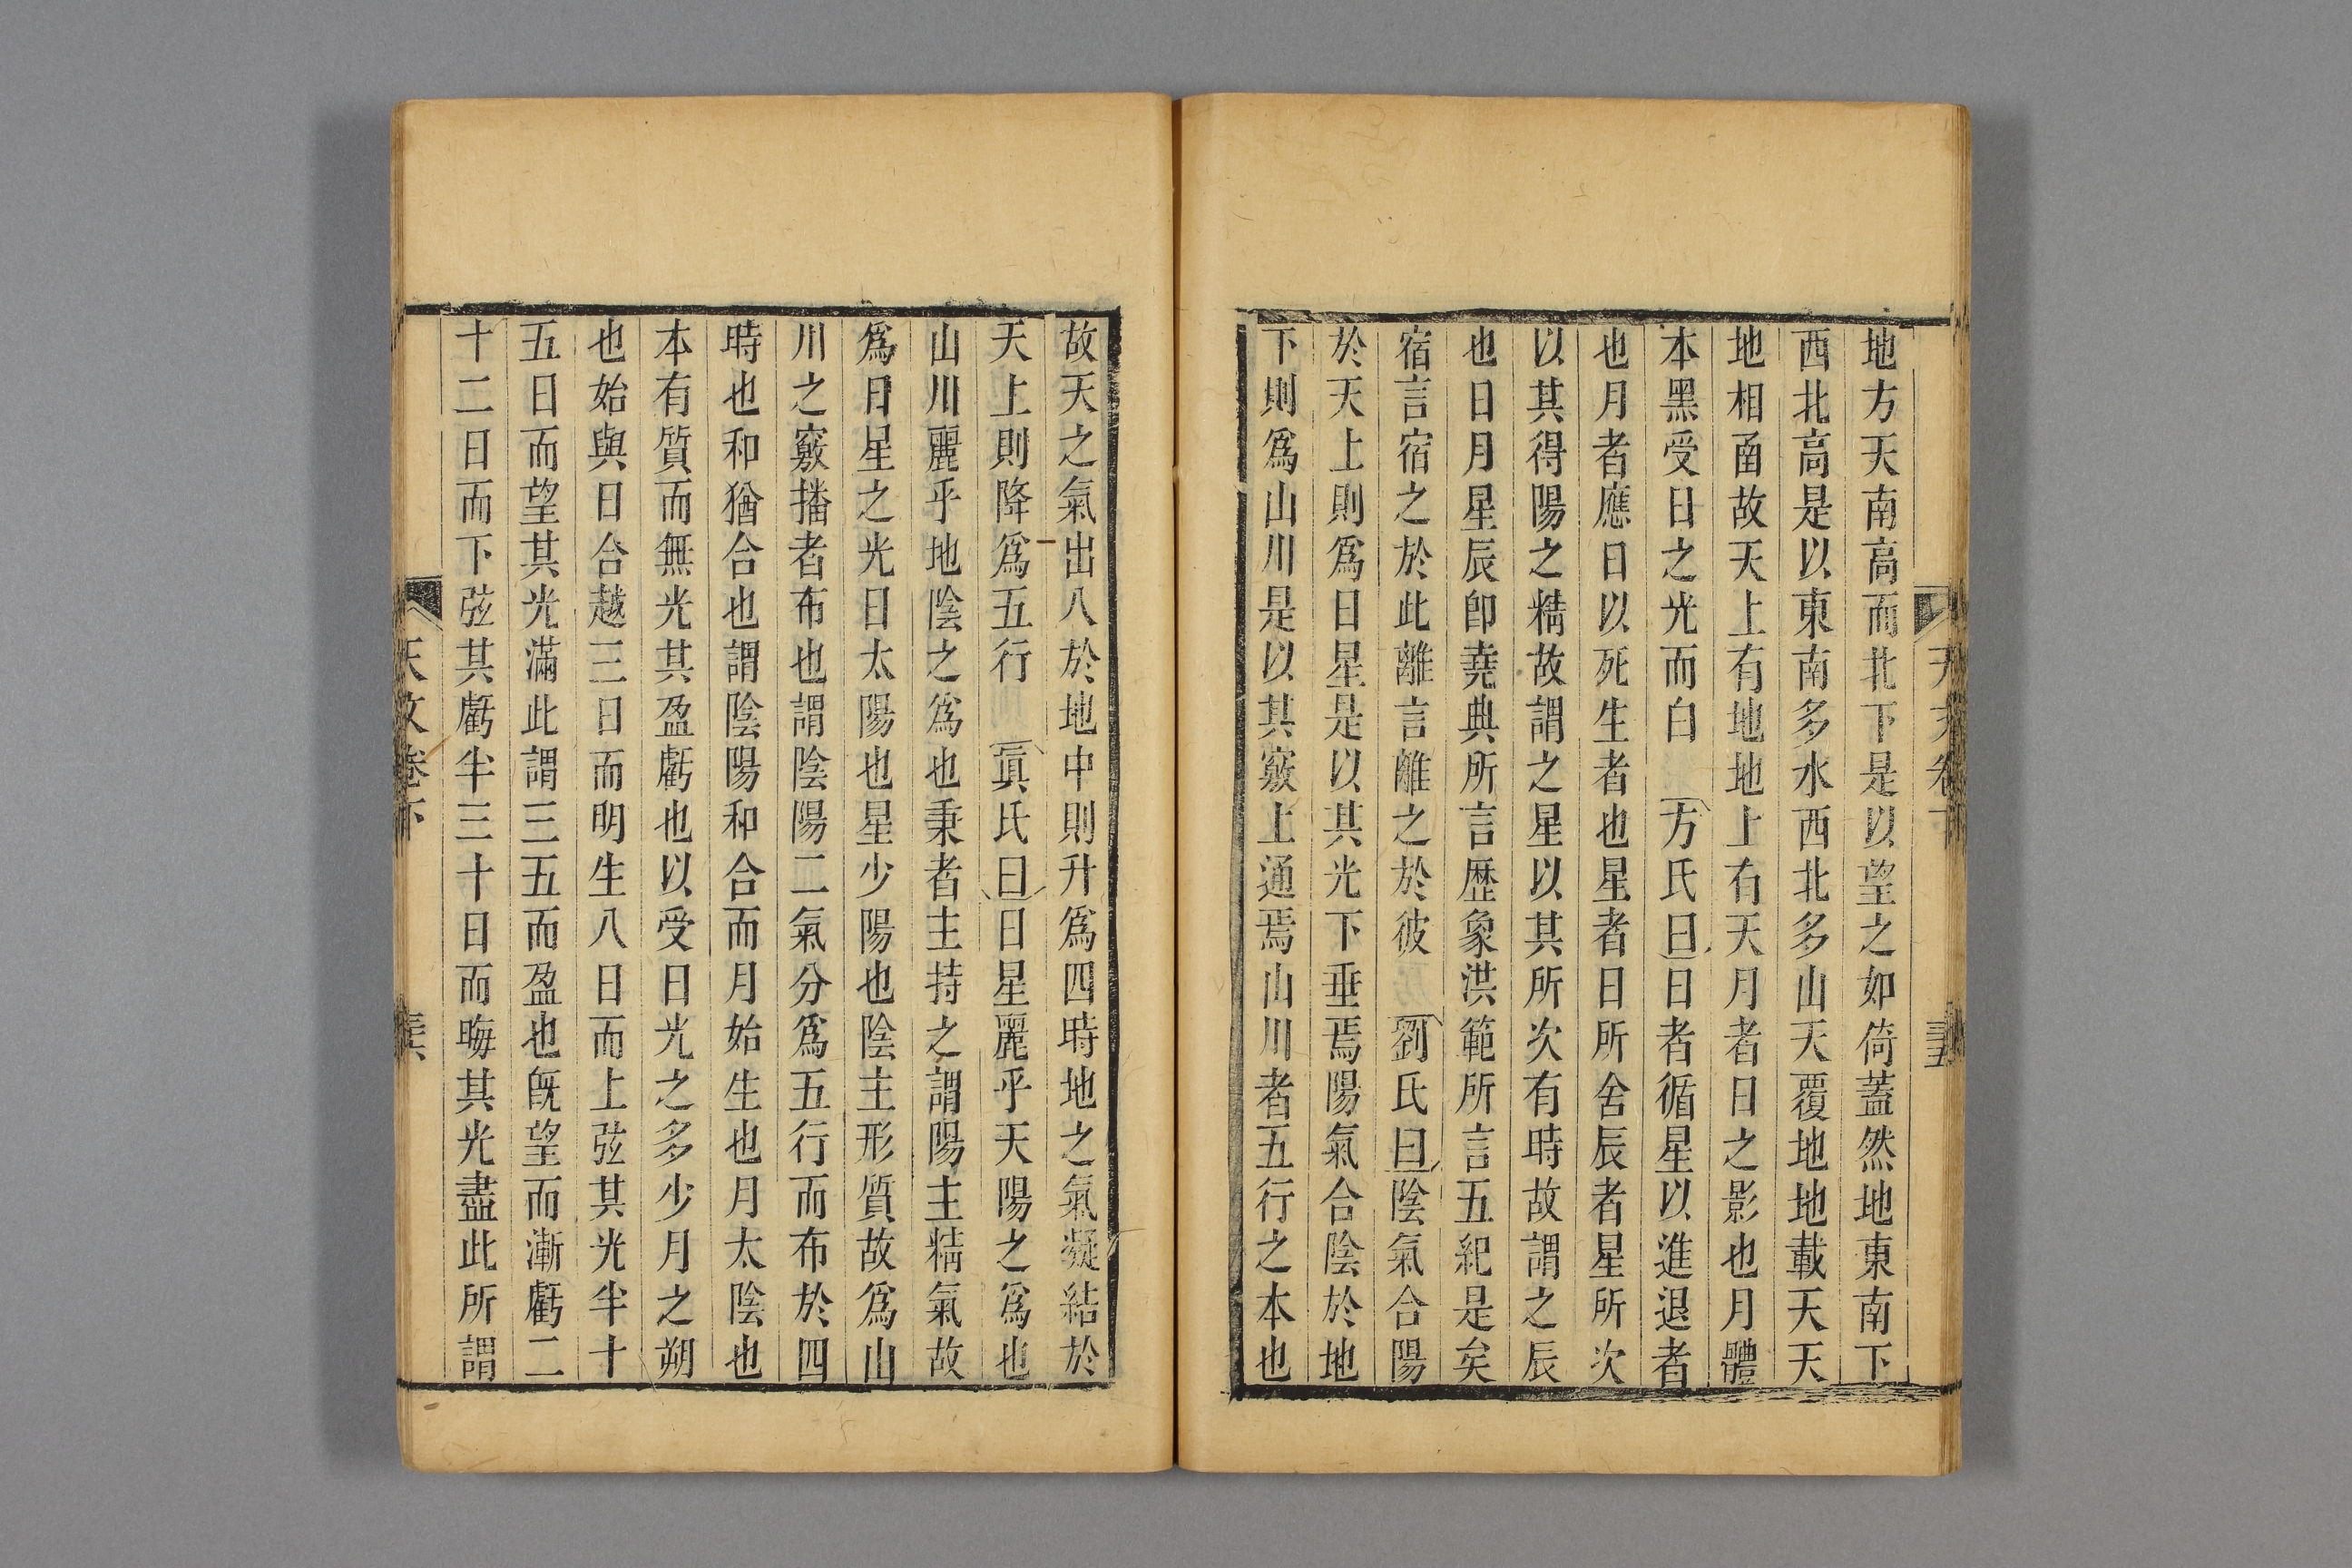 地方天南高而北下是以望之如倚蓋然地東南下
西北高是以東南多水西北多山天覆地地載天天
地相函故天上有地地上有天月者日之影也月體
本黑受日之光而白　方氏曰日者循星以進退者
也月者應日以死生者也星者日所舍辰者星所次
以其得陽之精故謂之星以其所次有時故謂之辰
也日月星辰卽堯典所言歷象洪範所言五紀是矣
宿言宿之於此離言離之於彼　劉氏曰陰氣合陽
於天上則爲日星是以其光下垂焉陽氣合陰於地
下則爲山川是以其竅上通焉山川者五行之本也
故天之氣出入於地中則升爲四時地之氣凝結於
天上則降爲五行　眞氏曰日星麗乎天陽之爲也
山川麗乎地陰之爲也秉者主持之謂陽主精氣故
爲日星之光日太陽也星少陽也陰主形質故爲山
川之竅播者布也謂陰陽二氣分爲五行而布於四
時也和猶合也謂陰陽和合而月始生也月太陰也
本有質而無光其盈虧也以受日光之多少月之朔
也始與日合越三日而明生八日而上弦其光半十
五日而望其光滿此謂三五而盈也旣望而漸虧二
十二日而下弦其虧半三十日而晦其光盡此所謂
天文卷下